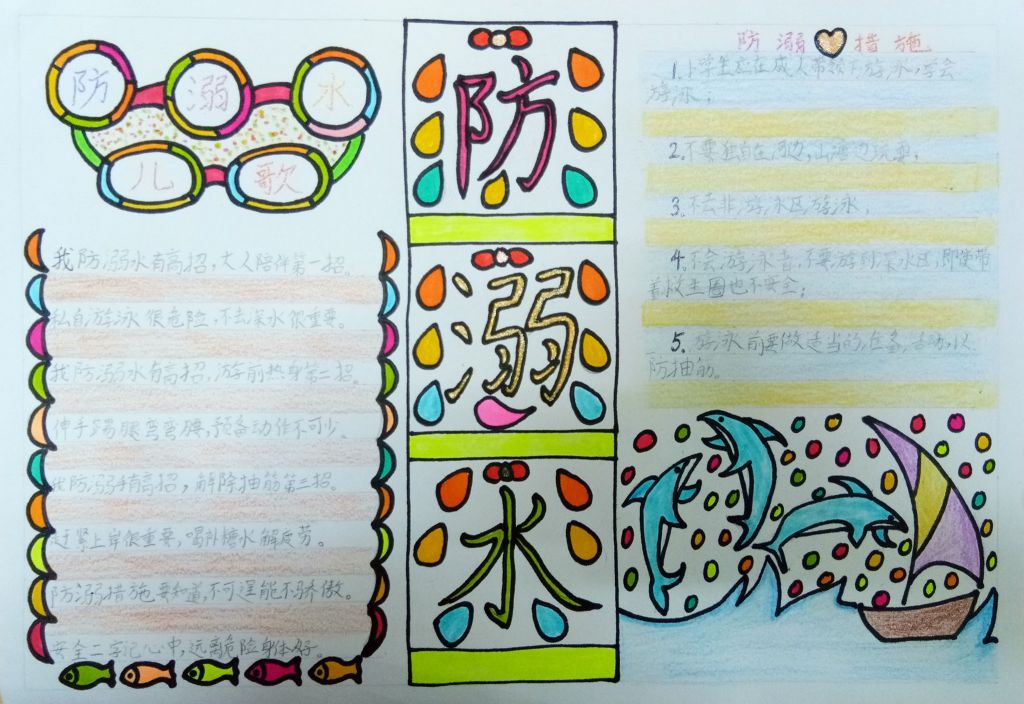 防溺水
儿歌
我防溺水有高招，大人陪伴第一招。
私自游泳很危险，不去深水很重要。
我防溺水有高招，游前热身第二招。
伸手踢腿弯弯腰，预备动作不可少。
我防溺水有高招，解除抽筋第三招。
赶紧上岸很重要，喝外糖水解疲劳。
防溺措施要知道，不可逞能不骄傲。
安全二字记心中，远离危险身体好。
防
溺
水
防溺措施
1.小学生应在成人带领下游泳，学会
游泳；
2.不要独自在河边，山塘边玩耍；
3.不去非游泳区游泳；
4.不会游泳者，不要游到深水区，即使带
着救生圈也不安全；
5.游泳前要做适当的准备活动，以
防抽筋。